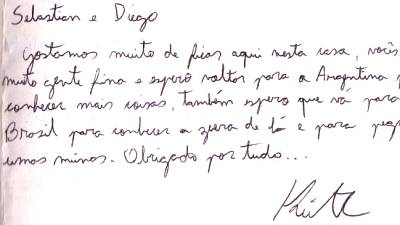 Sebastian e Diego
Gostamos muito de ficar aqui nesta casa, vocês
muito gente fina e espero voltar para a Argentina p
conhecer mais coisas, também espero que vá para
Brasil para conhecer a zuera de lá e para peg
umas minas. Obrigado por tudo...